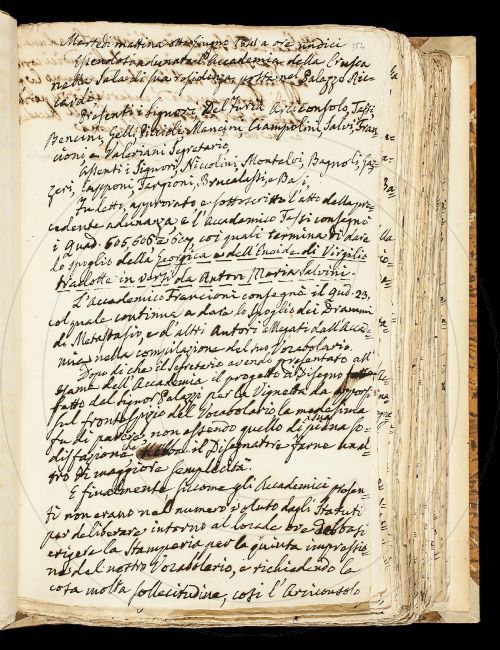 Martedì mattina otto Giugno 1841 a ore undici
364
Essendosi adunata l'Accademia della Crusca
nella Sala di sua residenza posta nel Palazzo Ric=
cardi
Presenti i Signori Del Furia Arciconsolo, Tassi
Bencini, Gelli, Piccioli, Mancini, Ciampolini, Salvi, Fran=
cioni, e Valeriani Segretario,
Assenti i Signori, Niccolini, Montalvi, Bagnoli, Zaz=
zeri, Capponi, Targioni, Brucalassi, e Basi,
Fu letto, approvato e sottoscritto l'atto della pre=
cedente adunanza, e l'Accademico Tassi consegnò
i Quad. 605, 606 e 607, coi quali termina di dare
lo spoglio della Georgica e dell'Eneide di Virgilio
tradotte in versi da Anton Maria Salvini.
L'Accademico Francioni consegnò il Qud. 23,
col quale continua a dare lo spoglio dei Drammi
di Metastasio, e d'altri Autori allegati dall'Acca=
demia nella compilazione del suo Vocabolario.
Dopo di che il Segretario avendo presentato all'
esame dell'Accademia il progetto di Disegno
fatto dal Signor Palazzi per la Vignetta da apporsi
sul frontespizio del Vocabolario, la medesima
fu di parere, non essendo quello di piena so=
disfazione sua, il Disegnatore farne un al=
tro di maggiore semplicità.
E finalmente siccome gli Accademici presen=
ti non erano nel numero voluto dagli Statuti
per deliberare intorno al locale ove debbasi
erigere la Stamperia per la quinta impressio=
ne del nostro Vocabolario, e richiedendo la
cosa molta sollecitudine, così l'Arciconsolo